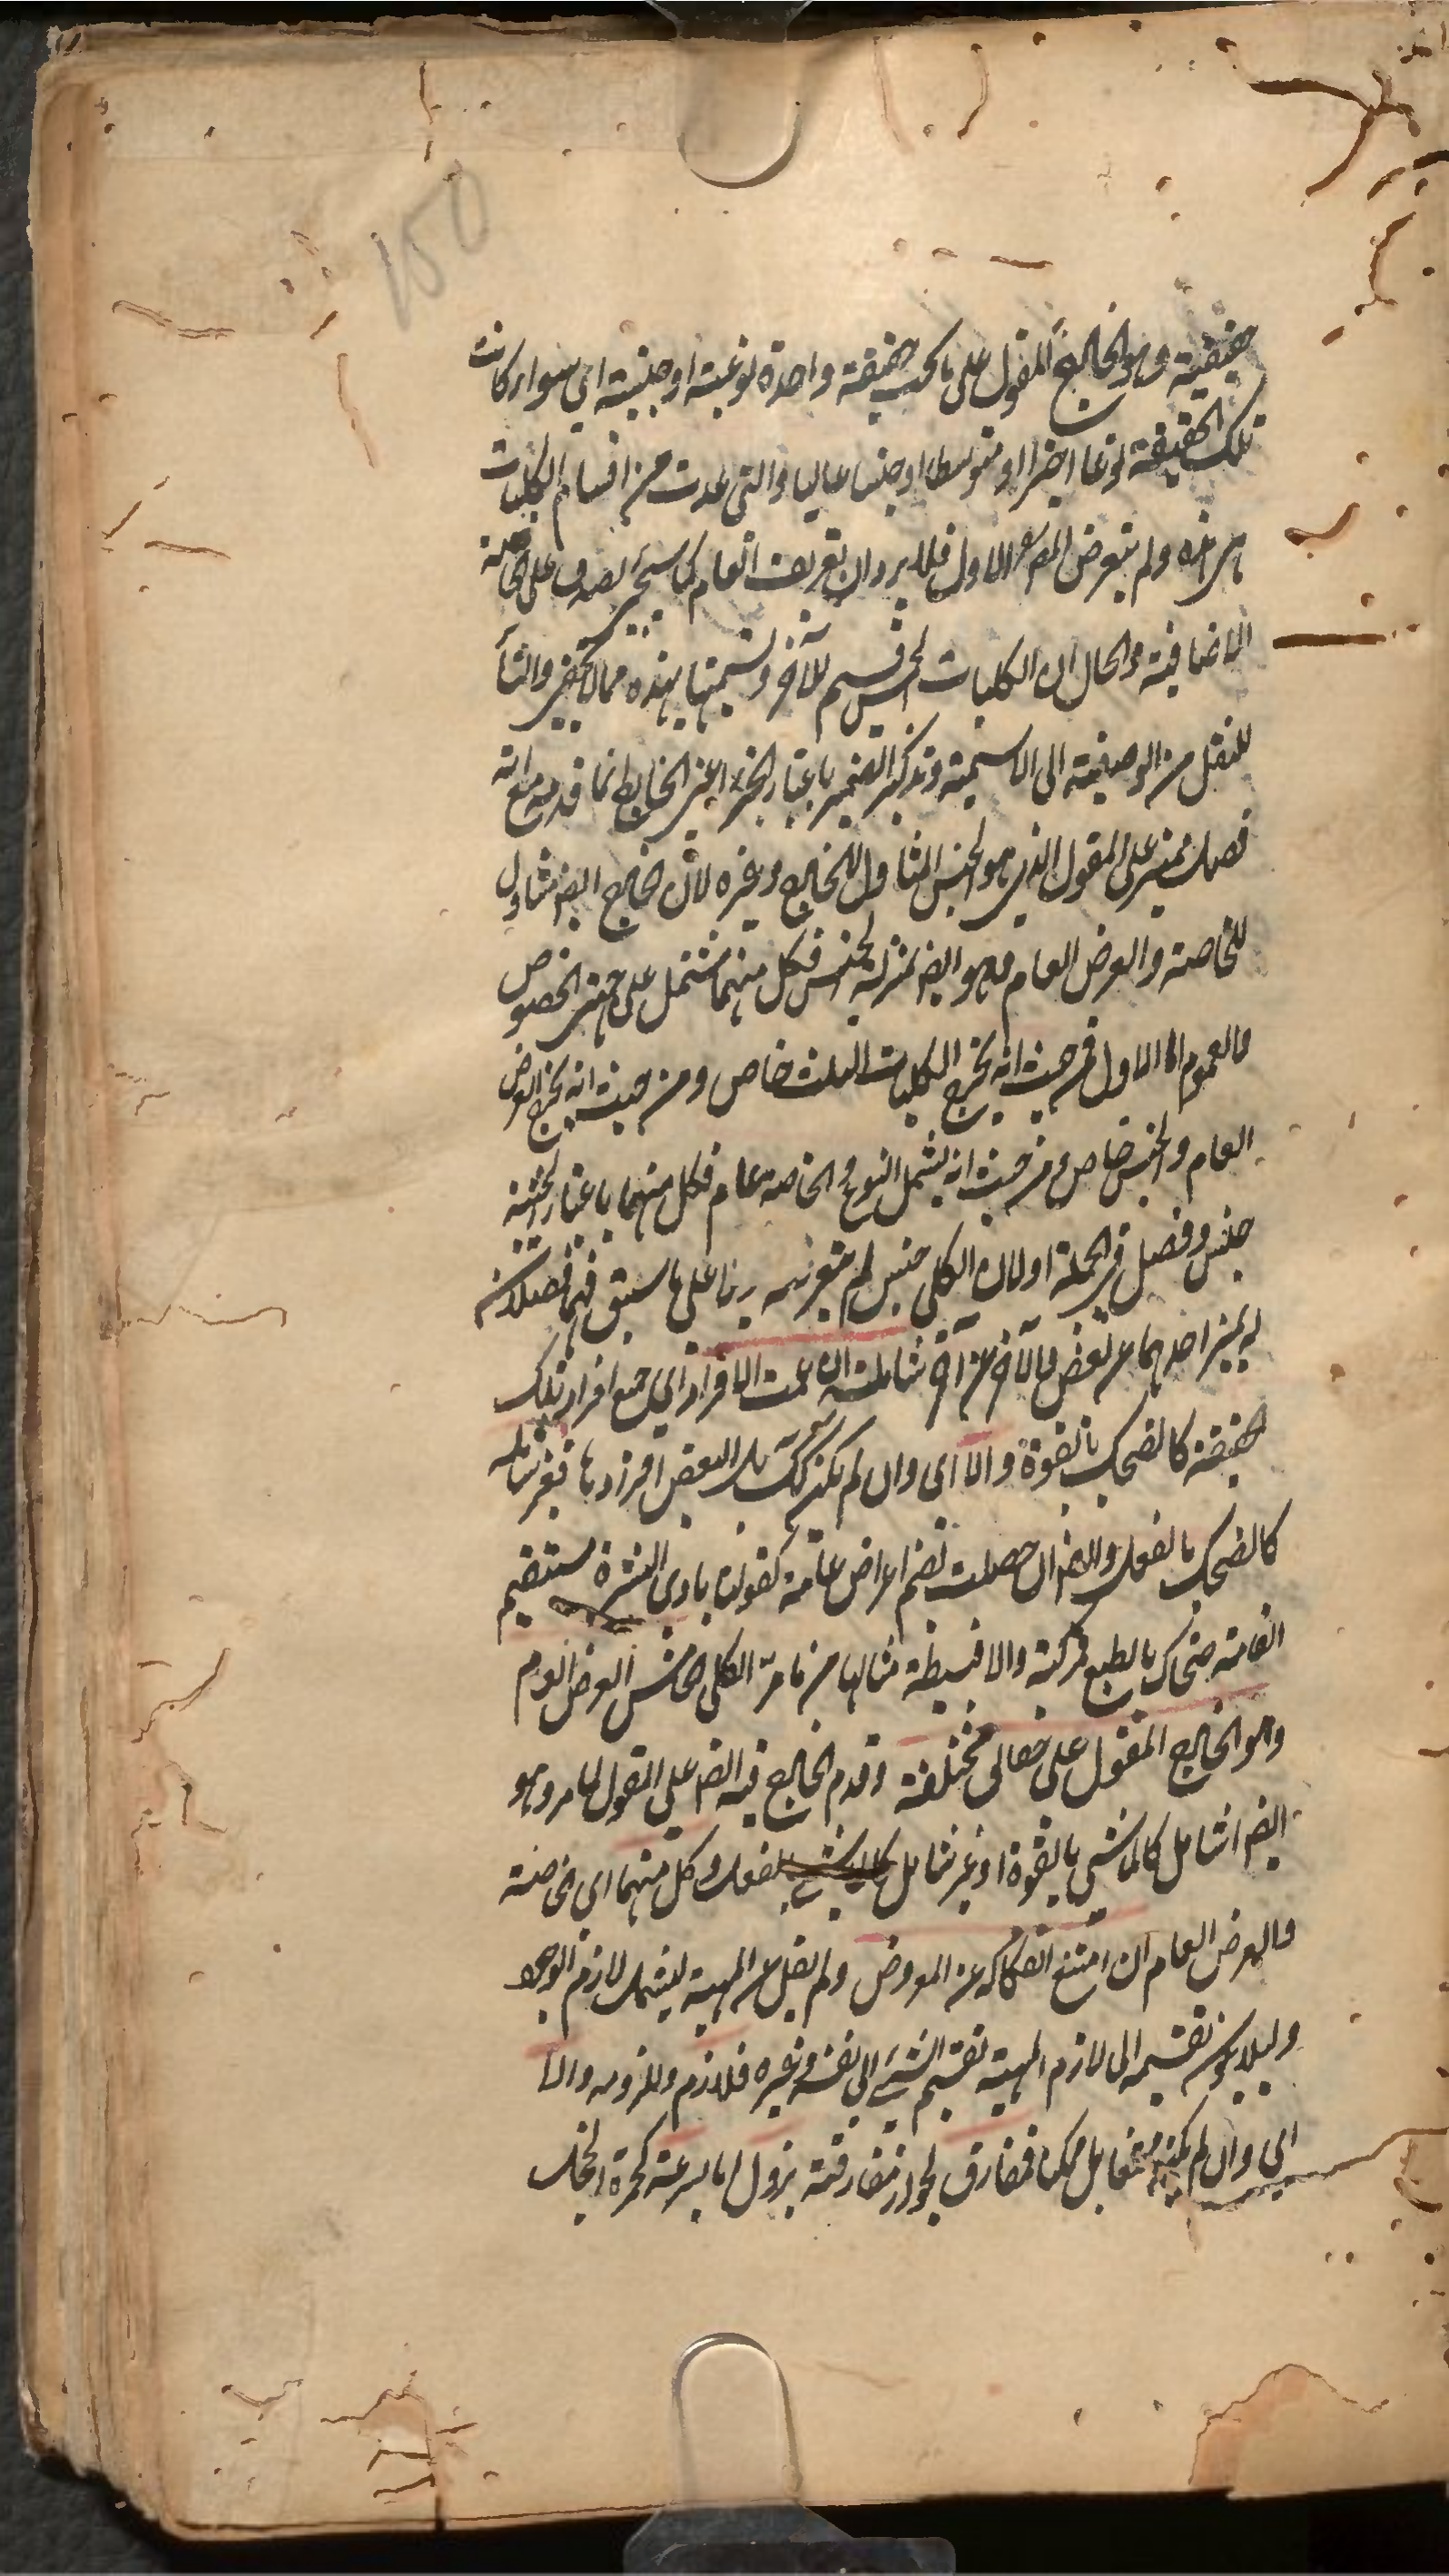 150
حقيقية وهو الخارج المقول على ما تحت حقيقة واحدة نوعية او جنسية اي سواء كانت
تلك الحقيقة نوعا اخيرا او متوسطا او جنسا عاليا والتي عدت من اقسام الكليات
هي هذه ولم يتعرض المص الاول فلا يرد ان تعريف العام كما سيجيء يصدق على الخاصة
الاضافية والحال ان الكليات الخمس قسيم للآخر وتسميتها بهذه مما لا يخفى والتاء
للنقل من الوصفية الى الاسمية وتذكير الضمير باعتبار الخبر اعني الخارج وانما قدمه مع انه
فصل مميز على المقول الذي هو الجنس المتناول للخارج وغيره لان الخارج ايضا متناول
للخاصة والعرض العام فهو ايضا بمنزلة الجنس فكل منهما مشتمل على جهتي الخصوص
والعموم اما الاول فمن حيث انه يخرج الكليات الثلث خاص ومن حيث انه يخرج العرض
العام والجنس خاص ومن حيث انه يشمل النوع والخاصة عام فكل منهما باعتبار الحيثية
جنس وفصل في الجملة اولان الكلي جنس لم يتعرضه بناء على ما سبق فهما فصلان
له يميز احدهما عن بعض والآخر عن آخر شاملة ان عمت الافراد اي جميع افراد تلك
الحقيقة كالضحك بالقوة والا اي وان لم يكن كذلك بل البعض افرادها فغير شاملة
كالضحك بالفعل وايضا ان حصلت بضم اعراض عامة كقولنا بادي البشرة مستقيم
القامة ضحاك بالطبع فمركبة والا فبسيطة مثالها من ما مر الكلي الخامس العرض العام
وهو الخارج المقول على حقائق مختلفة وقدم الخارج فيه ايضا على المقول لما مر وهو
ايضا شامل كالماشي بالقوة او غير شامل بالفعل وكل منهما اي الخاصة
والعرض العام ان امتنع انفكاكه عن المعروض ولم يقل عن المهية ليشمل لازم الوجود
ولئلا يكون تقسيمه الى لازم المهية تقسيم الشيء الى نفسه وغيره فلازم وملزومه والا
اي وان لم يكن ممكنا فمفارق لجواز مفارقته يزول اما بسرعة كحمرة الخجل